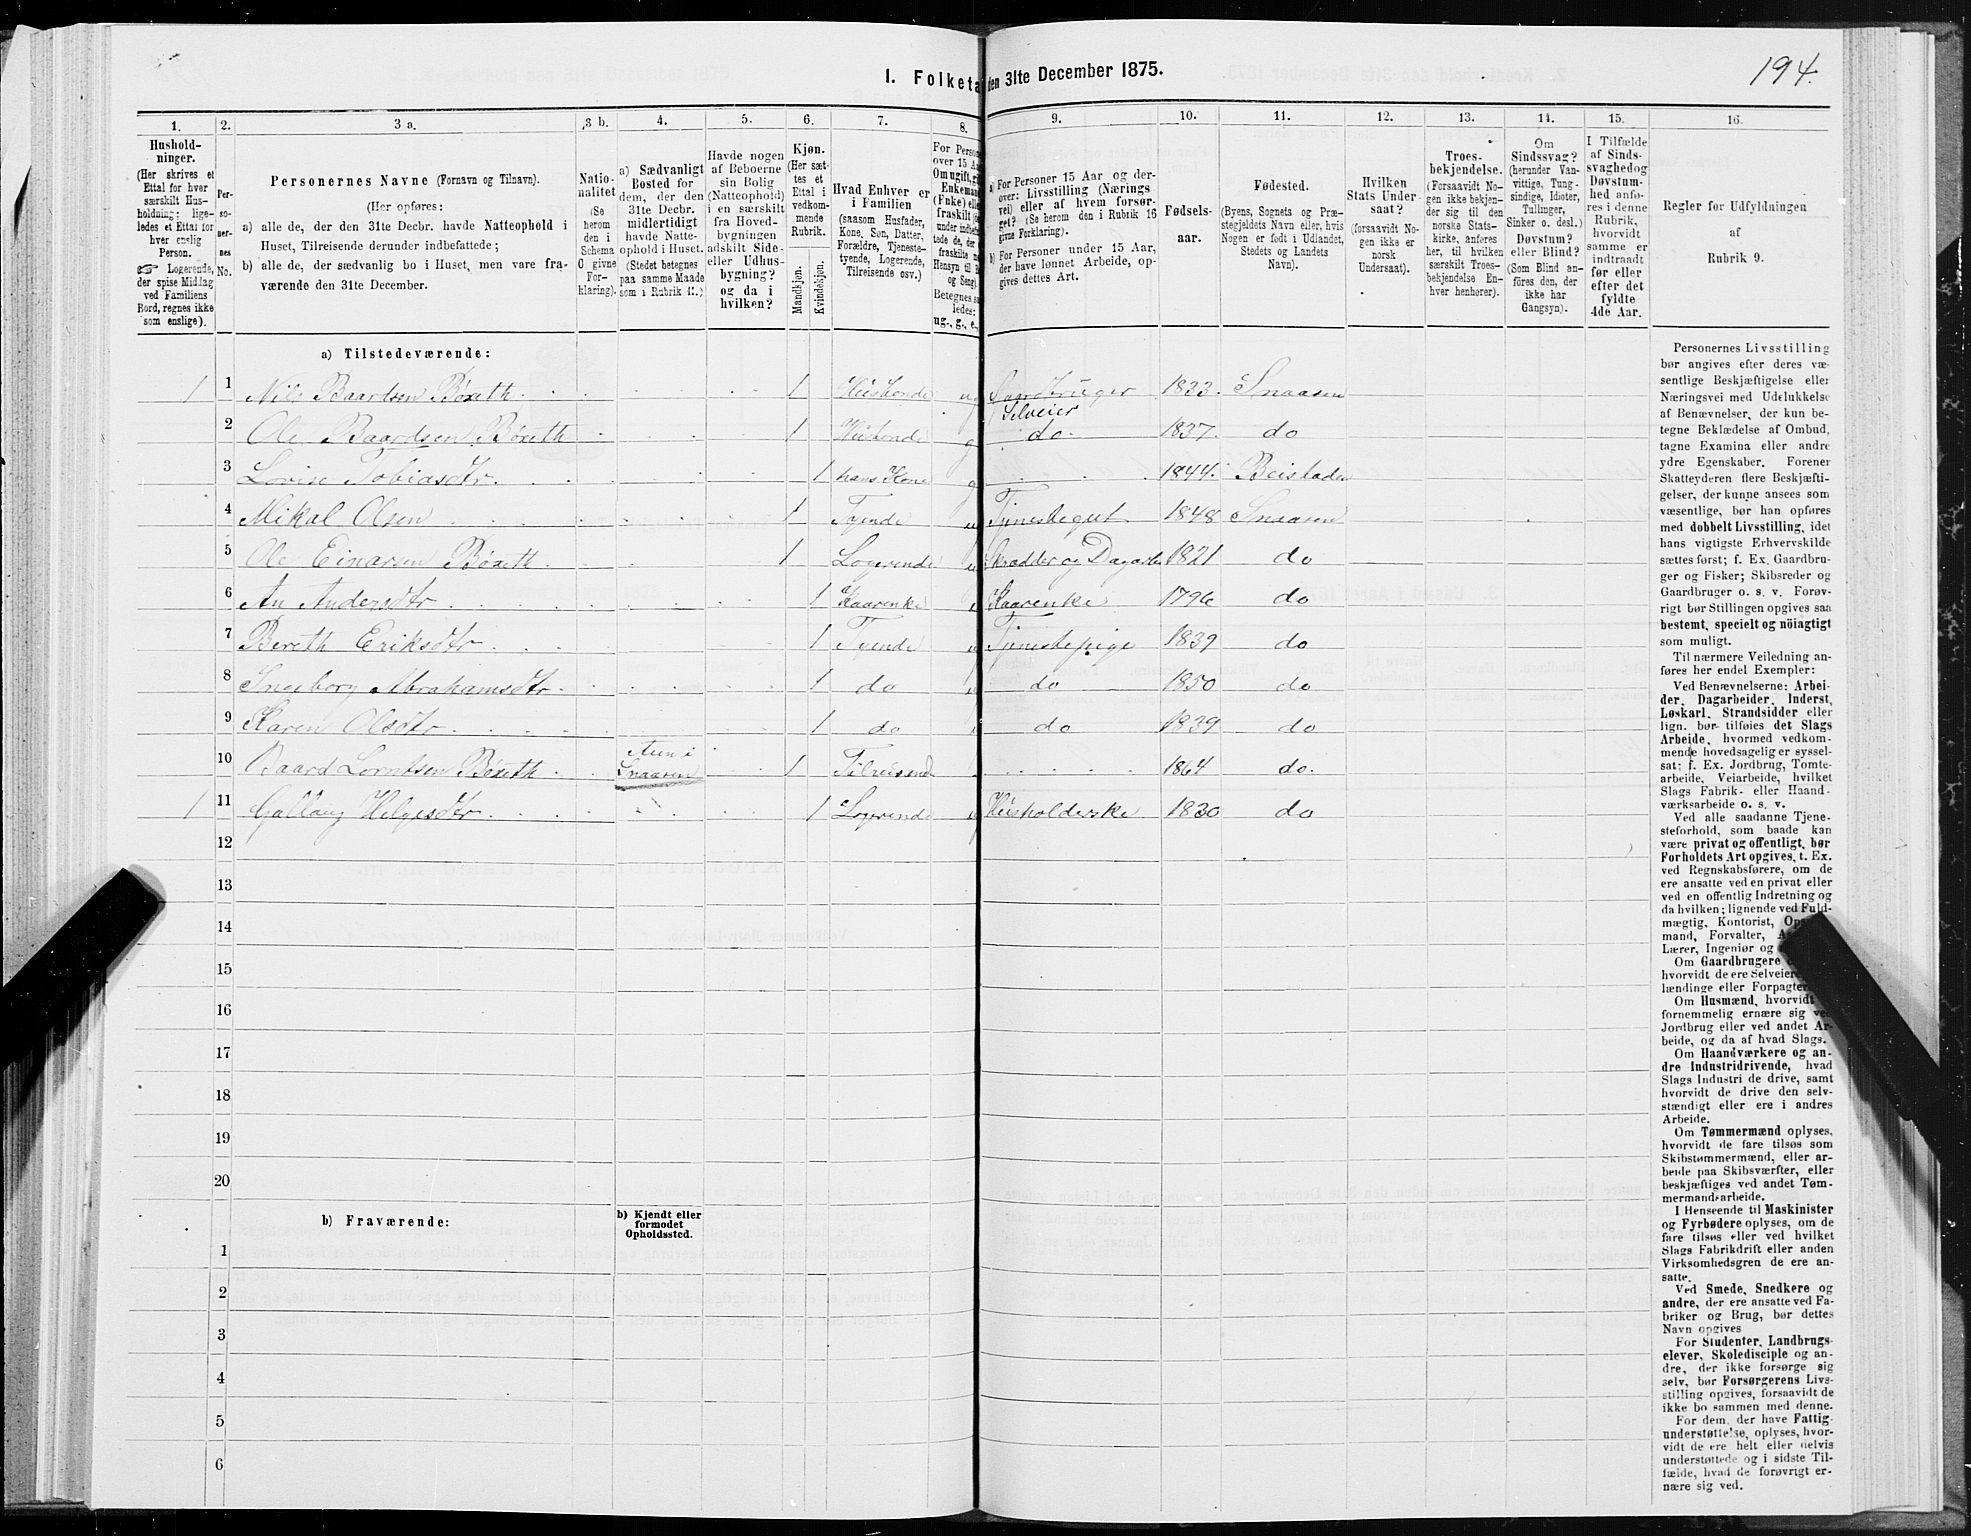 194.
I. Folketa den 31te December 1875.
1. 2. 3 a. 3 b. 4. 5. 6. 7. 8. 9. 10. 11. 12. 13. 14. 15. 16.
Hushold-
ninger.
(Her skrives et
Ettal for hver
særskilt Hus-
holdning; lige-
ledes et Ettal for
hver enslig
Person.
☞ Logerende,
der spise Middag
ved Familiens
Bord, regnes ikke
som enslige).
Per-
so-
ner-
nes
No.
Personernes Navne (Fornavn og Tilnavn).
(Her opføres:
a) alle de, der den 31te Decbr. havde Natteophold i
Huset, Tilreisende derunder indbefattede;
b) alle de, der sædvanlig bo i Huset, men vare fra-
værende den 31te December.
Natio-
nalitet
(Se
herom
den i
Schema
O givne
For-
klaring).
a) Sædvanligt
Bosted for
dem, der den
31te Decbr.
midlertidigt
havde Natte-
ophold i Huset.
(Stedet betegnes
paa samme Maade
som i Rubrik 11.)
Havde nogen
af Beboerne
sin Bolig
(Natteophold)
i en særskilt
fra Hoved-
bygningen
adskilt Side-
eller Udhus-
bygning?
og da i
hvilken?
Kjøn.
(Her sæt-
tes et
Ettal i
vedkom-
mende
Rubrik.
Mandkjøn.
Kvindekjøn.
Hvad Enhver er
i Familien
(saasom Husfader,
Kone, Søn, Datter,
Forældre, Tjeneste-
tyende, Logerende,
Tilreisende osv.)
For Person
over 15 Aa
Om ugift, gi
Enkeman
(Enke) elle
fraskilt (
under indbefat
tede de, der
fraskilte
Hensyn til B
og Seng).
Betegnes sa
ledes:
ug., g., e.,
a) For Personer 15 Aar og der-
over: Livsstilling (Nærings
vei) eller af hvem forsør-
get? (Se herom den i Rubrik 16
givne Forklaring).
b) For Personer under 15 Aar,
der have lønnet Arbeide, op-
gives dettes Art.
Fødsels-
aar.
Fødested.
(Byens, Sognets og Præ-
stegjeldets Navn eller, hvis
Nogen er født i Udlandet,
Stedets og Landets
Navn).
Hvilken
Stats Under-
saat?
(forsaavidt No-
gen ikke er
norsk
Undersaat).
Troes-
bekjendelse.
(Forsaavidt No-
gen ikke bekjen-
der sig til den
norske Stats-
kirke, anføres
her, til hvilken
særskilt Troes-
bekjendelse En-
hver henhører).
Om
Sindssvag?
(herunder Van-
vittige, Tung-
sindige, Idioter,
Tullinger,
Sinker o. desl.)
Døvstum?
eller Blind?
(Som Blind an-
føres den, der
ikke har
Gangsyn).
I Tilfælde
af Sinds-
svaghed og
Døvstum-
hed anfø-
res i denne
Rubrik,
hvorvidt
samme er
indtraadt
før eller
efter det
fyldte
4de Aar.
Regler før Udfyldningen
af
Rubrik 9.
a) Tilstedeværende:
1 1 Nils Baardsen Böxeth 1 Husbonde ug Gaardbruger Selveier 1833 Snaasen
2 Ole Baardsen Böxeth 1 Husbonde g do 1837. do
3 Lovise Tobiasdtr 1 hans Kone g 1844. Beistaden
4 Mikal Olsen 1 Tyende u Tjenestegut 1848 Snaasen
5 Ole Einarsen Böxeth 1 Logerende Skrædder og Dagarb 1821 do
6 An Andersdtr 1 Kaarenke Kaarenke 1796 do
7 Bereth Eriksdtr 1 Tyende Tjenestepige 1839 do
8 Ingeborg Abrahamsdtr 1 do do 1850 do
9 Karen Olsdtr 1 do do 1839 do
10 Baard Lorntsen Böxeth Aun i Snaasen 1 Tilreisend 1864 do
1 11 Gallaug Helgesdtr 1 Logerende Husholderske 1830 do
12
13
14
15
16
17
18
19
20
b) Fraværende:
b) Kjendt eller
formodet
Opholdssted.
1
2
3
4
5
6
Personernes Livsstilling
bør angives efter deres væ-
sentlige Beskjæftigelse eller
Næringsvei med Udelukkelse
af Benævnelser, der kun be-
tegne Beklædelse af Ombud,
tagne Examina eller andre
ydre Egenskaber. Forener
Skatteyderen flere Beskjæfti-
gelser, der kunne ansees som
væsentlige, bør han opføres
med dobbelt Livsstilling, idet
hans vigtigste Erhvervskilde
sættes først; f. Ex. Gaardbru-
ger og Fisker; Skibsreder og
Gaardbruger o. s. v. Forøv-
rigt bør Stillingen opgives saa
bestemt, specielt og nöiagtigt
som muligt.
Til nærmere Veiledning an-
føres her endel Exempler:
Ved Benævnelserne: Arbei-
der, Dagarbeider, Inderst,
Løskarl, Strandsidder eller
lign. bør tilføies det Slags
Arbeide, hvormed vedkom-
mende hovedsagelig er syssel-
sat; f. Ex. Jordbrug, Tomte-
arbeide, Veiarbeide, hvilket
Slags Fabrik- eller Haand-
værksarbeide o. s. v.
Ved alle saadanne Tjene-
steforhold, som baade kan
være privat og offentligt, bør
Forholdets Art opgives, t. Ex.
ved Regnskabsførere, om de
ere ansatte ved en privat eller
ved en offentlig Indretning og
da hvilken; lignende ved Fuld-
mægtig, Kontorist,
mand, Forvalter,
Lærer, Ingeniør og
Om Gaardbrugere
hvorvidt de ere Selveiere,
lændinge eller Forpagtere
Om Husmænd, hvorvidt
fornemmelig ernære sig ved
Jordbrug eller ved andet Ar-
beide, og da af hvad Slags.
Om Haandværkere og an-
dre Industridrivende, hvad
Slags Industri de drive, samt
hvorvidt de drive den selv-
stændigt eller ere i andres
Arbeide.
Om Tømmermænd oplyses,
hvorvidt de fare tilsøs som
Skibstømmermænd, eller ar-
beide paa Skibsværfter, eller
beskjæftiges ved andet Tøm-
mermandsarbeide.
I Henseende til Maskinister
og Fyrbødere oplyses, om de
fare tilsøs eller ved hvilket
Slags Fabrikdrift eller anden
Virksomhedsgren de ere an-
satte.
Ved Smede, Snedkere og
andre, der ere ansatte ved Fa-
briker og Brug, bør dettes
Navn opgives
For Studenter, Landbrugs-
elever, Skoledisciple og an-
dre, der ikke forsørge sig
selv, bør Forsørgerens Livs-
stilling opgives, forsaavidt de
ikke bo sammen med denne.
For dem, der have Fattig-
understøttelse, oplyses, hvor-
vidt de ere helt eller delvis
understøttede og i sidste Til-
fælde, hvad de forøvrigt er-
nære sig ved.